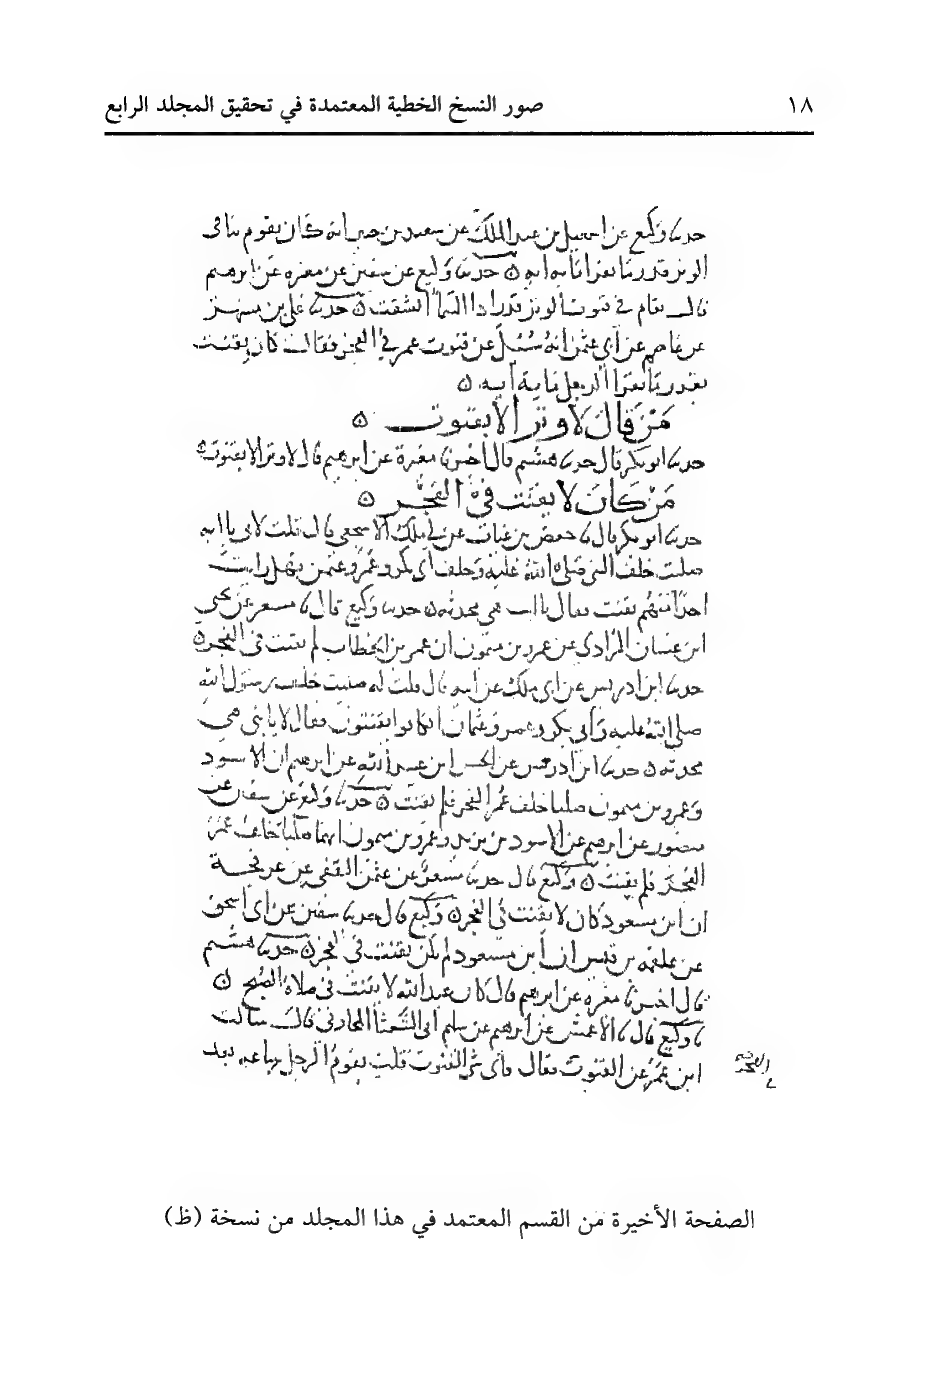 ١٨
صور النسخ الخطية المعتمدة في تحقيق المجلد الرابع
حدثنا وكيع عن اسمعيل بن عبد الملك عن سعيد بن جبير انه كان يقوم بنا في
الوتر قدر ما يقرا مائة آية ۞ حدثنا وكيع عن سفين عن مغيره عن ابرهيم
قال يقام في قنوت الوتر قدر اذا السماء انشقت ۞ حدثنا علي بن مسهر
عن عاصم عن ابي عثمن انه سئل عن قنوت عمر في الفجر فقال كان يقنت
بقدر ما يقرا الرجل مائة آية ۞
من قال لا وتر الا بقنوت ۞
حدثنا ابو بكر قال حدثنا هشيم قال اخبرنا مغيرة عن ابرهيم قال لا وتر الا بقنوت
من كان لا يقنت في الفجر ۞
حدثنا ابو بكر قال نا حفص بن غياث عن ابي ملك الاشجعي قال قلت لابي يا ابه
صليت خلف النبي صلى الله عليه وخلف ابي بكر وعمر وعثمن فهل رايت
احدا منهم يقنت فقال يا بني هي محدثه ۞ حدثنا وكيع قال نا مسعر عن يحيى
ابن غسان المرادي عن عمرو بن ميمون ان عمر بن الخطاب لم يقنت في الفجر ۞
حدثنا ابن ادريس عن ابي ملك عن ابيه قال قلت له صليت خلف رسول الله
صلى الله عليه وابي بكر وعمر وعثمان اكانوا يقنتون فقال لا يا بني هي
محدثه ۞ حدثنا ابن ادريس عن الحسن ابن عبيد الله عن ابرهيم ان الاسود
وعمرو بن ميمون صليا خلف عمر الفجر فلم يقنت ۞ حدثنا وكيع عن سفين عن
منصور عن ابرهيم عن الاسود بن يزيد وعمرو بن ميمون انهما صليا خلف عمر
الفجر فلم يقنت ۞ وكيع قال حدثنا مسعر عن عثمن الثقفي عن عرفجة
ان ابن مسعود كان لا يقنت في الفجر ۞ وكيع قال حدثنا سفين عن ابي اسحق
عن علقمه بن قيس ان ابن مسعود لم يكن يقنت في الفجر ۞ حدثنا هشيم
قال اخبرنا مغيره عن ابرهيم قال كان عبد الله لا يقنت في صلاة الصبح ۞
نا وكيع قال نا الاعمش عن ابرهيم عن سليم ابي الشعثا المحاربي قال سالت
ابن عمر عن القنوت فقال فاي شي القنوت قلت يقوم الرجل ساعه بعد
الصفحة الأخيرة من القسم المعتمد في هذا المجلد من نسخة (ظ)